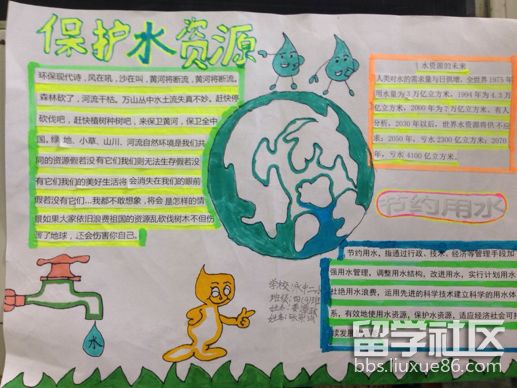 保护水资源
环保现代诗，风在吼，沙在叫，黄河将断流，黄河将断流。
森林砍了，河流干枯。万山丛中水土流失真不妙，赶快停
砍伐吧，赶快植树种树吧，来保卫黄河，保卫全中
国。绿地、小草、山川、河流自然环境是我们共
同的资源假若没有它们我们则无法生存假若没
有它们我们的美好生活将会消失在我们的眼前
假若没有它们…我都不敢想象，将会是怎样的情
景如果大家依旧浪费祖国的资源乱砍伐树木不但伤
害了地球，还会伤害你自己。
水资源的未来
人类对水的需求量与日俱增，全世界1975年
用水量为3万亿立方米，1994年为4.3万
亿立方米，2000年为7万亿立方米。有人
分析，2030年以后，世界水资源将供不应
求：2050年，亏水2300亿立方米；2070
年，亏水4100亿立方米。
节约用水
节约用水，指通过行政、技术、经济等管理手段加
强用水管理，调整用水结构，改进用水，实行计划用水
杜绝用水浪费，运用先进的科学技术建立科学的用水体
系，有效地使用水资源，保护水资源，适应经济社会可持
续发展
学校：
班级：四
姓名：
水
留学社区
bbs.liuxue86.com